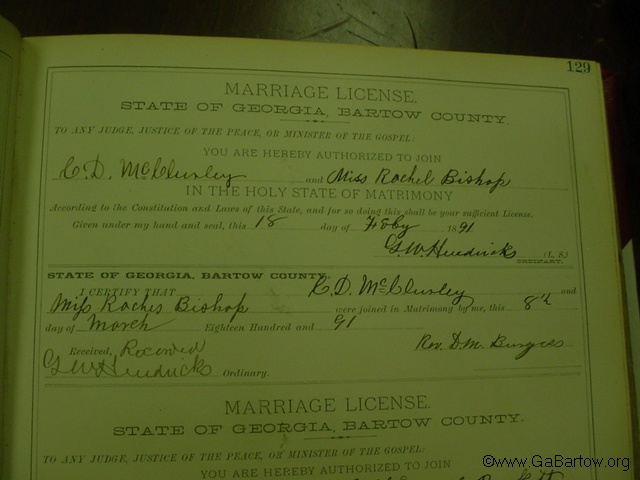 129
MARRIAGE LICENSE.
STATE OF GEORGIA, BARTOW COUNTY.
TO ANY JUDGE, JUSTICE OF THE PEACE, OR MINISTER OF THE GOSPEL:
YOU ARE HEREBY AUTHORIZED TO JOIN
C. D. McClursley and Miss Rachel Bishop
IN THE HOLY STATE OF MATRIMONY
According to the Constitution and Laws of this State, and for so doing this shall be your sufficient License.
Given under my hand and seal, this 18 day of Feby 1891
G. W. Hendricks (L. S.)
ORDINARY.
STATE OF GEORGIA, BARTOW COUNTY.
I CERTIFY THAT C. D. McClursley and
Miss Raches Bishop were joined in Matrimony by me, this 8th
day of March Eighteen Hundred and 91
Received, Received Rev. D. M. Burgess
G W Hendricks Ordinary.
MARRIAGE LICENSE.
STATE OF GEORGIA, BARTOW COUNTY.
TO ANY JUDGE, JUSTICE OF THE PEACE, OR MINISTER OF THE GOSPEL:
YOU ARE HEREBY AUTHORIZED TO JOIN
©www.GaBartow.org